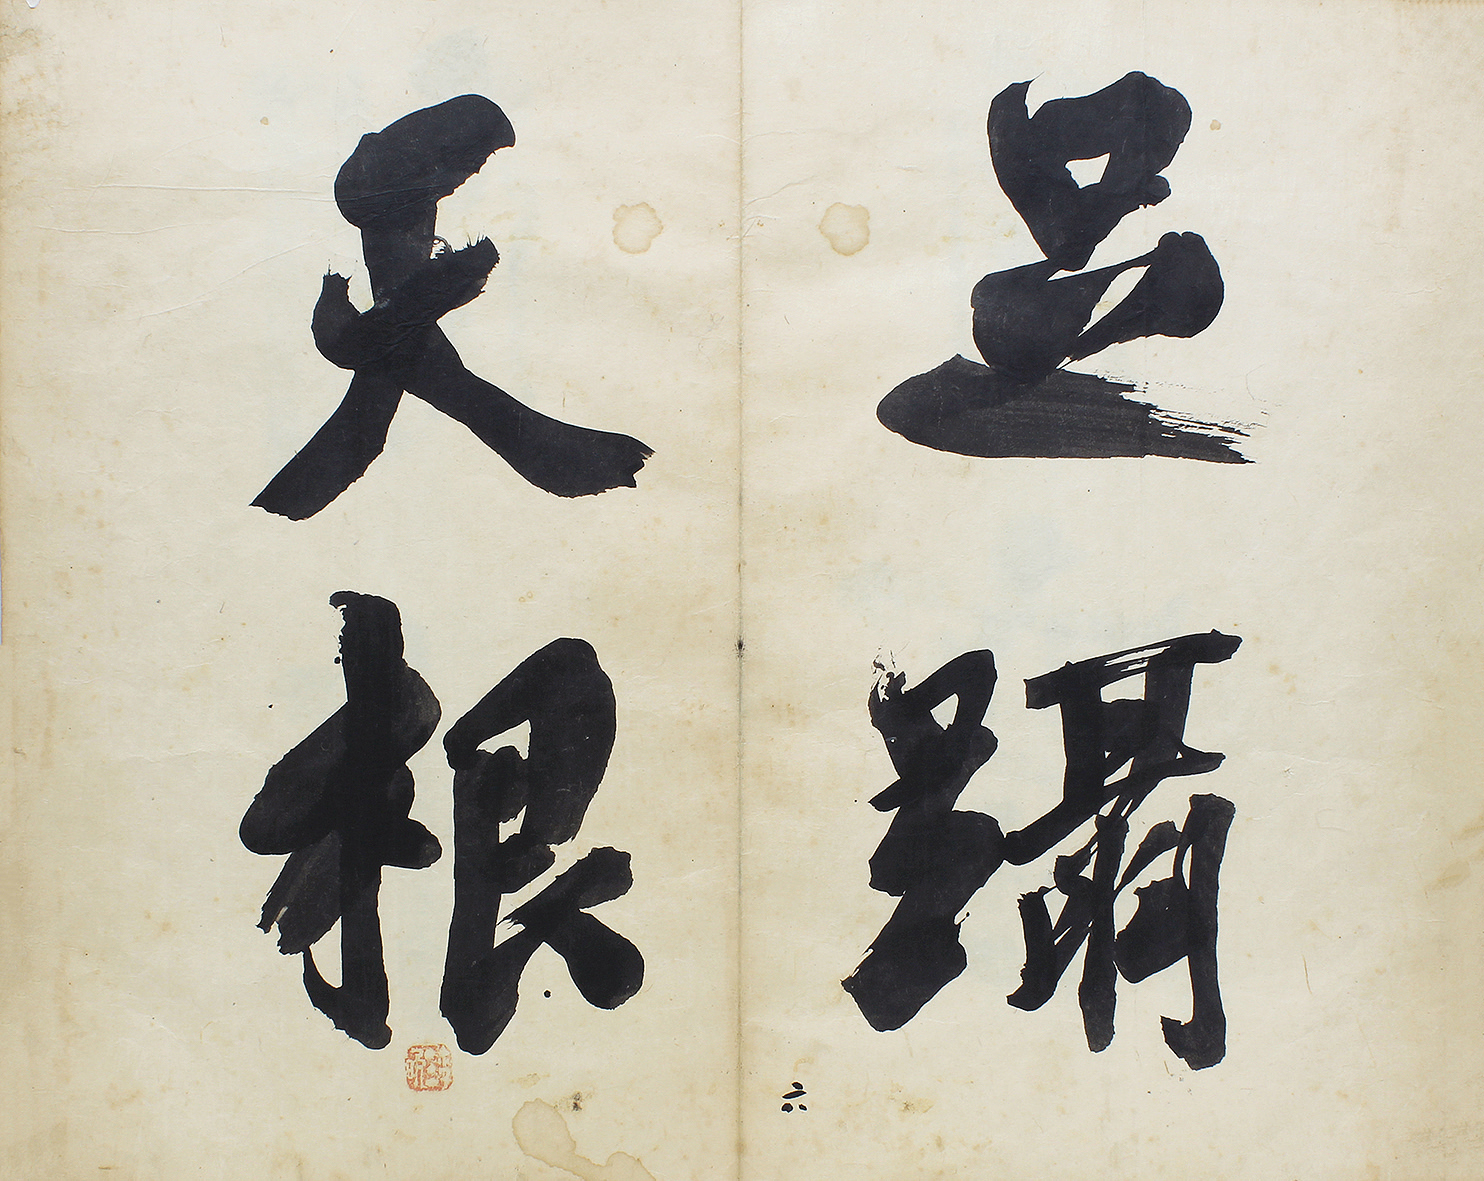 足躡
天根
六